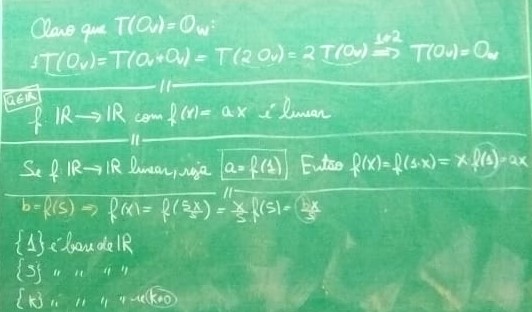 Claro que T(0v) = 0w:
1T(0v) = T(0v+0v) = T(2 0v) = 2 T(0v) 1≠2 ⇒ T(0v) = 0w
a∈ℝ
f: ℝ → ℝ com f(x) = a.x é linear
Se f: ℝ → ℝ linear, seja a = f(1) Então f(x) = f(1.x) = x f(1) = ax
b = f(5) ⇒ f(x) = f(5x/5) = x/5 f(5) = bx/5
{1} é base de ℝ
{5} " " " "
{k} " " " " se k≠0